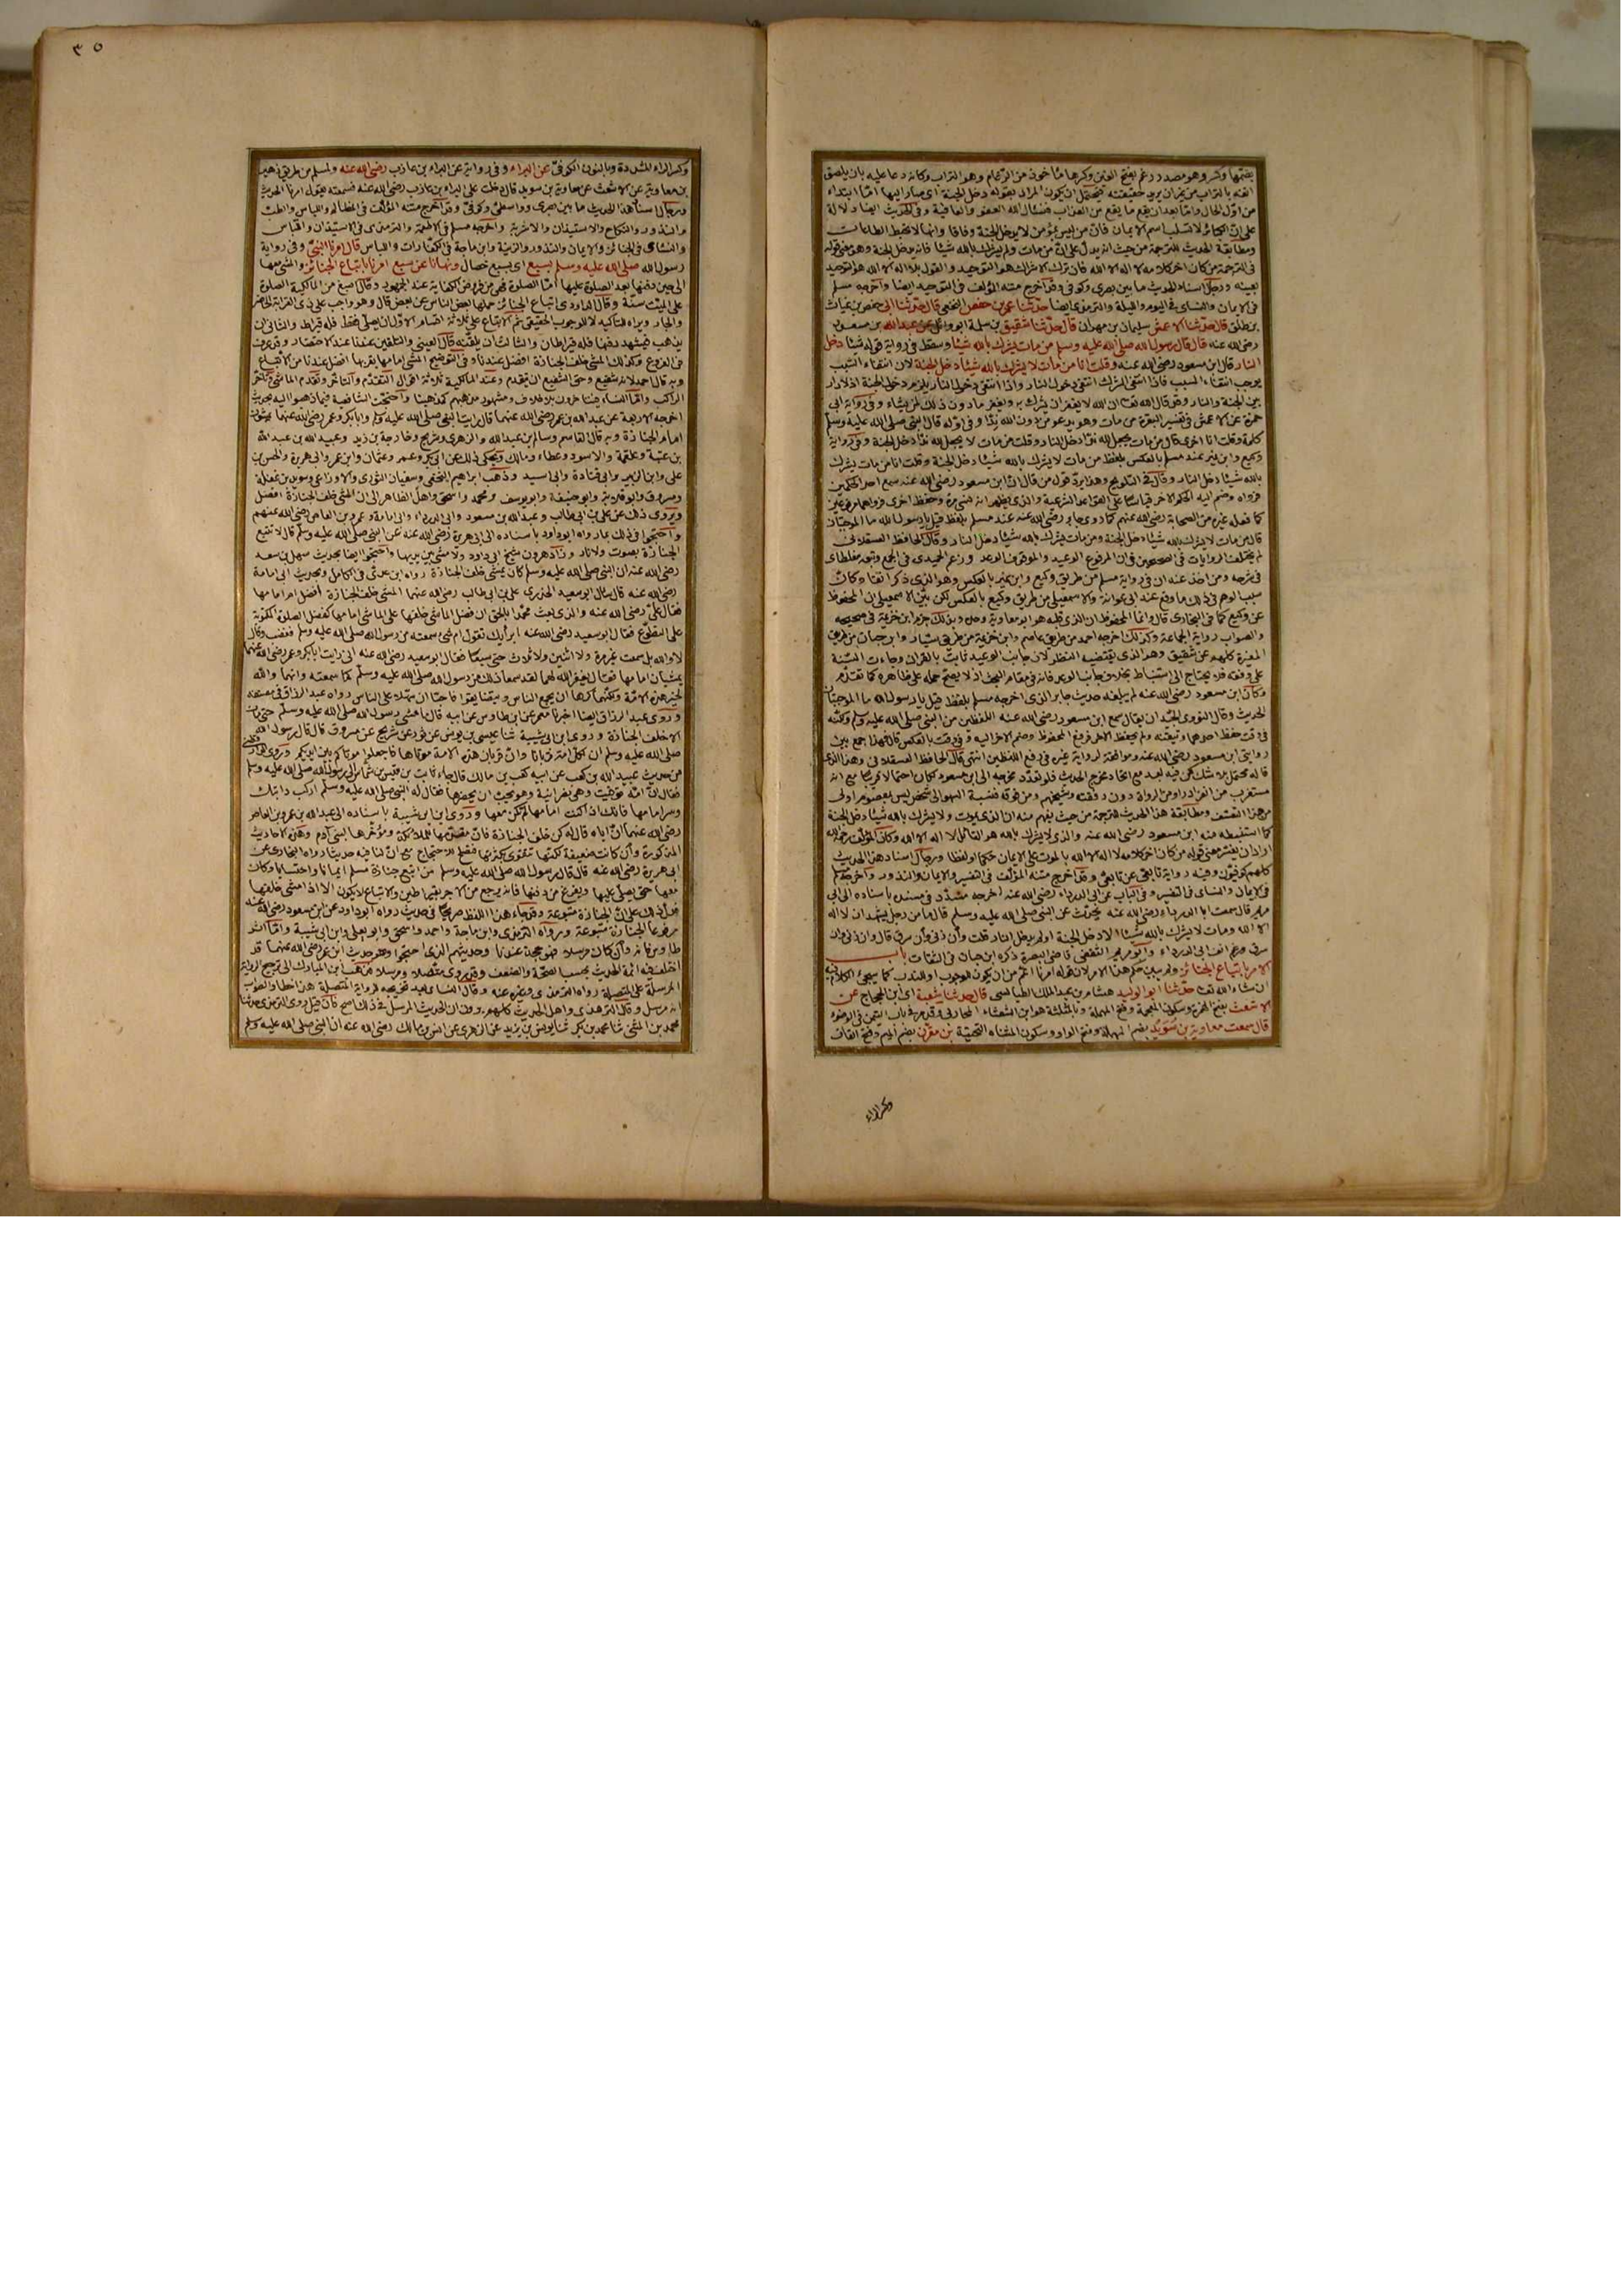 بضمها وكسر وهو مصدر رغم بفتح الغين وكسرها مأخوذ من الرغام وهو التراب وكأنه دعا عليه بأن يلصق
انفه بالتراب
من اول الحال واما بعد ان يقع ما يقع من العذاب فنسأل الله العفو والعافية وفى الحديث ايضا دلالة
على ان الكبائر لا تسلب اسم الايمان فان من ليس بمؤمن لا يدخل الجنة وفاقا وانها لا تحبط الطاعات
ومطابقة الحديث للترجمة من حيث انه يدل على ان من مات ولم يشرك بالله شيئا فانه يدخل الجنة وهو معنى قوله
فى الترجمة من كان اخر كلامه لا اله الا الله فان ترك الاشراك هو التوحيد والقول بلا اله الا الله هو التوحيد
بعينه ورجال اسناد الحديث ما بين بصرى وكوفى وقد اخرج متنه المؤلف فى التوحيد ايضا واخرجه مسلم
فى الايمان والنسائى فى اليوم والليلة والترمذى ايضا حدثنا عمر بن حفص النخعى قال حدثنا ابى حفص بن غياث
بن طلق قال حدثنا الاعمش سليمان بن مهران قال حدثنا شقيق بن سلمة ابو وائل عن عبد الله بن مسعود
رضى الله عنه قال قال رسول الله صلى الله عليه وسلم من مات يشرك بالله شيئا وسقط فى رواية قوله شيئا دخل
النار قال ابن مسعود رضى الله عنه وقلت انا من مات لا يشرك بالله شيئا دخل الجنة لان انتفاء السبب
يوجب انتفاء المسبب فاذا انتفى الشرك انتفى دخول النار واذا انتفى دخول النار يلزم دخول الجنة اذ لا دار
بين الجنة والنار
حمزة عن الاعمش فى تفسير البقرة من مات وهو يدعو من دون الله ندا وفى اوله قال النبى صلى الله عليه وسلم
كلمة وقلت انا اخرى قال من مات يجعل لله ندا دخل النار وقلت من مات لا يجعل لله ندا دخل الجنة وفى رواية
وكيع وابن نمير عند مسلم بالعكس بلفظ من مات لا يشرك بالله شيئا دخل الجنة وقلت انا من مات يشرك
بالله شيئا دخل النار وقال فى التلويح وهذا يرد قول من قال ان ابن مسعود رضى الله عنه سمع احد الحكمين
كما فعله غيره من الصحابة رضى الله عنهم كما روى جابر رضى الله عنه عند مسلم بلفظ قيل يا رسول الله ما الموجبتان
قال من مات لا يشرك بالله شيئا دخل الجنة ومن مات يشرك بالله شيئا دخل النار وقال الحافظ العسقلانى
لم يختلف الروايات فى الصحيحين فى ان المرفوع الوعيد والموقوف الوعد وزعم الحميدى فى الجمع وتبعه مغلطاى
فى شرحه ومن اخذ عنه ان فى رواية مسلم من طريق وكيع وابن نمير بالعكس وهو الذى ذكر انفا وكان
سبب الوهم فى ذلك ما وقع عند ابى عوانة والاسمعيلى من طريق وكيع بالعكس لكن بين الاسمعيلى ان المحفوظ
عن وكيع كما فى البخارى
والصواب رواية الجماعة وكذلك اخرجه احمد من طريق عاصم وابن خزيمة من طريق سيار وابن حبان من طريق
المغيرة كلهم عن شقيق وهذا الذى يقتضيه النظر لان جانب الوعيد ثابت بالقران وجاءت السنة
على وفقه فلا يحتاج الى استنباط بخلاف جانب الوعد فانه فى مقام البحث اذ لا يصح حمله على ظاهره كما تقدم
وكان ابن مسعود رضى الله عنه لم يبلغه حديث جابر الذى اخرجه مسلم بلفظ قيل يا رسول الله ما الموجبتان
الحديث وقال النووى الجيد ان يقال سمع ابن مسعود رضى الله عنه اللفظين من النبى صلى الله عليه وسلم ولكنه
فى وقت حفظ احدهما وتيقنه ولم يحفظ الاخر فرفع المحفوظ وضم الاخر اليه وفى وقت بالعكس قال فهذا جمع بين
روايتى ابن مسعود رضى الله عنه وموافقة لرواية غيره فى رفع اللفظين انتهى قال الحافظ العسقلانى وهذا الذى
قاله محتمل بلا شك لكن فيه بعد مع اتحاد مخرج الحديث فلو تعدد مخرجه الى ابن مسعود لكان احتمالا قريبا مع انه
مستغرب من انفراد راو من الرواة دون رفقته وشيخهم ومن فوقه فنسبة السهو الى شخص ليس بمعصوم اولى
من هذا التعسف ومطابقة هذا الحديث للترجمة من حيث يفهم منه ان الذى يموت ولا يشرك بالله شيئا دخل الجنة
كما استنبطه منه ابن مسعود رضى الله عنه والذى لا يشرك بالله هو القائل لا اله الا الله وكان المؤلف رحمه الله
اراد ان يفسر معنى قوله من كان اخر كلامه لا اله الا الله بالموت على الايمان حكما او لفظا ورجال اسناد هذا الحديث
كلهم كوفيون وفيه رواية تابعى عن تابعى وقد اخرج متنه المؤلف فى التفسير والايمان والنذور واخرجه مسلم
فى الايمان والنسائى فى التفسير وفى الباب عن ابى الدرداء رضى الله عنه اخرجه مسدد فى مسنده باسناده الى ابى
مريم قال سمعت ابا الدرداء رضى الله عنه يحدث عن النبى صلى الله عليه وسلم قال ما من رجل يشهد ان لا اله
الا الله ومات لا يشرك بالله شيئا الا دخل الجنة او لم يدخل النار قلت وان زنى وان سرق قال وان زنى وان
سرق ورغم انف ابى الدرداء وابو مريم الثقفى قاضى البصرة ذكره ابن حبان فى الثقات باب
الامر باتباع الجنائز ولم يبين حكم هذا الامر لان قوله امرنا اعم من ان يكون للوجوب او للندب كما سيجئ الكلام فيه
ان شاء الله تعالى حدثنا ابو الوليد هشام بن عبد الملك الطيالسى قال حدثنا شعبة اى ابن الحجاج عن
الاشعث بفتح الهمزة وسكون المعجمة وفتح المهملة وبالمثلثة هو ابن ابى الشعثاء المحاربى وقد مر فى باب التيمن فى الوضوء
قال سمعت معاوية بن سويد بضم المهملة وفتح الواو وسكون المثناه التحتية بن مقرن بضم الميم وفتح القاف
وكسر الراء
٣٥
وكسر الراء المشددة وبالنون الكوفى عن البراء وفى رواية عن البراء بن عازب رضى الله عنه ولمسلم من طريق زهير
بن معاوية عن الاشعث عن معاوية بن سويد قال دخلت على البراء بن عازب رضى الله عنه فسمعته يقول امرنا الحديث
ورجال اسناد هذا الحديث ما بين بصرى وواسطى وكوفى وقد اخرج متنه المؤلف فى المظالم واللباس والطب
والنذور والنكاح والاستيذان والاشربة واخرجه مسلم فى الاطعمة والترمذى فى الاستيذان واللباس
والنسائى فى الجنائز والايمان والنذور والزينة وابن ماجة فى الكفارات واللباس قال امرنا النبى وفى رواية
رسول الله صلى الله عليه وسلم بسبع اى بسبع خصال ونهانا عن سبع امرنا باتباع الجنائز والمشى معها
الى حين دفنها بعد الصلوة عليها اما الصلوة فهى من فروض الكفاية عند الجمهور وقال اصبغ من المالكية الصلوة
على الميت سنة وقال الداودى اتباع الجنائز حملها بعض الناس عن بعض قال وهو واجب على ذى القرابة الحاضر
والجار ويراه للتأكيد لا للوجوب الحقيقى ثم الاتباع على ثلاثة اقسام الاول ان يصلى فقط فله قيراط والثانى ان
يذهب فيشهد دفنها فله قيراطان والثالث ان يلقنه قال العينى والتلقين عندنا عند الاحتضار وقد عرف
فى الفروع وكذلك المشى خلف الجنازة افضل عندنا وفى التوضيح المشى امامها بقربها افضل عندنا من الاتباع
وبه قال احمد لانه شفيع وحق الشفيع ان يتقدم وعند المالكية ثلاثة اقوال التقدم والتأخر وتقدم الماشى وتأخر
الراكب واما النساء فيتأخرن بلا خلاف ومشهور مذهبهم كمذهبنا واحتجت الشافعية فيما ذهبوا اليه بحديث
اخرجه الاربعة عن عبد الله بن عمر رضى الله عنهما قال رايت النبى صلى الله عليه وسلم وابا بكر وعمر رضى الله عنهما يمشون
امام الجنازة وبه قال القاسم وسالم بن عبد الله والزهرى وشريح وخارجة بن زيد وعبيد الله بن عبد الله
بن عتبة وعلقمة والاسود وعطاء ومالك ويحكى ذلك عن ابى بكر وعمر وعثمان وابن عمر وابى هريرة والحسن بن
على وابن الزبير وابى قتادة وابى اسيد وذهب ابراهيم النخعى وسفيان الثورى والاوزاعى وسويد بن غفلة
ومسروق وابو قلابة وابو حنيفة وابو يوسف ومحمد واسحق واهل الظاهر الى ان المشى خلف الجنازة افضل
ويروى ذلك عن على بن ابى طالب وعبد الله بن مسعود وابى الدرداء وابى امامة وعمرو بن العاص رضى الله عنهم
واحتجوا فى ذلك بما رواه ابو داود باسناده الى ابى هريرة رضى الله عنه عن النبى صلى الله عليه وسلم قال لا تتبع
الجنازة بصوت ولا نار وزاد هرون شيخ ابى داود ولا مشى بين يديها واحتجوا ايضا بحديث سهل بن سعد
رضى الله عنه ان النبى صلى الله عليه وسلم كان يمشى خلف الجنازة رواه ابن عدى فى الكامل وبحديث ابى امامة
رضى الله عنه قال سأل ابو سعيد الخدرى على بن ابى طالب رضى الله عنهما المشى خلف الجنازة أفضل ام امامها
فقال على رضى الله عنه والذى بعث محمدا بالحق ان فضل الماشى خلفها على الماشى امامها كفضل الصلوة المكتوبة
على التطوع فقال ابو سعيد رضى الله عنه ابرأيك تقول ام شئ سمعته من رسول الله صلى الله عليه وسلم فغضب وقال
لا والله بل سمعت غير مرة ولا اثنين ولا ثلاث حتى سبعا فقال ابو سعيد رضى الله عنه انى رايت ابا بكر وعمر رضى الله عنهما
يمشيان امامها فقال يغفر الله لهما لقد سمعا ذلك من رسول الله صلى الله عليه وسلم كما سمعته وانهما والله
لخير هذه الامة ولكنهما كرها ان يجتمع الناس ويتضايقوا فاحبا ان يسهلا على الناس رواه عبد الرزاق فى مصنفه
وروى عبد الرزاق ايضا اخبرنا معمر عن ابن طاوس عن ابيه قال ما مشى رسول الله صلى الله عليه وسلم حتى مات
الا خلف الجنازة وروى ابن ابى شيبة ثنا عيسى بن يونس عن ثور عن شريح عن مسروق قال قال رسول الله
صلى الله عليه وسلم ان لكل امة قربانا وان قربان هذه الامة موتاها فاجعلوا موتاكم بين ايديكم وروى الدارقطنى
من حديث عبيد الله بن كعب عن ابيه كعب بن مالك قال جاء ثابت بن قيس بن شماس الى رسول الله صلى الله عليه وسلم
فقال ان امه توفيت وهى نصرانية وهو يحب ان يحضرها فقال له النبى صلى الله عليه وسلم اركب دابتك
وسر امامها فانك اذا كنت امامها لم تكن معها وروى ابن ابى شيبة باسناده الى عبد الله بن عمرو بن العاص
رضى الله عنهما ان اباه قال له كن خلف الجنازة فان مقدمها للملائكة ومؤخرها لبنى آدم وهذه الاحاديث
المذكورة وان كانت ضعيفة لكنها تتقوى بكثرتها فتصلح للاحتجاج مع ان لنا فيه حديثا رواه البخارى عن
ابى هريرة رضى الله عنه قال قال رسول الله صلى الله عليه وسلم من اتبع جنازة مسلم ايمانا واحتسابا وكان
معها حتى يصلى عليها ويفرغ من دفنها فانه يرجع من الاجر بقيراطين والاتباع لا يكون الا اذا مشى خلفها
فدل ذلك على ان الجنازة متبوعة وقد جاء هذا اللفظ صريحا فى حديث رواه ابو داود عن ابن مسعود رضى الله عنه
مرفوعا الجنازة متبوعة ورواه الترمذى وابن ماجة واحمد واسحق وابو يعلى وابن ابى شيبة واما اثر
طاوس فانه وان كان مرسلا فهو حجة عندنا وحديثهم الذى احتجوا وهو حديث ابن عمر رضى الله عنهما قد
اختلف فيه ائمة الحديث بحسب الصحة والضعف وقد روى متصلا ومرسلا فذهب ابن المبارك الى ترجيح الرواية
المرسلة على المتصلة رواه الترمذى وغيره عنه وقال النسائى بعد تخريجه للرواية المتصلة هذا خطأ والصواب
انه مرسل وقال الترمذى واهل الحديث كلهم يرون ان الحديث المرسل فى ذلك اصح فان قيل روى الترمذى حدثنا
محمد بن المثنى ثنا محمد بن بكر ثنا يونس بن يزيد عن الزهرى عن انس بن مالك رضى الله عنه ان النبى صلى الله عليه وسلم